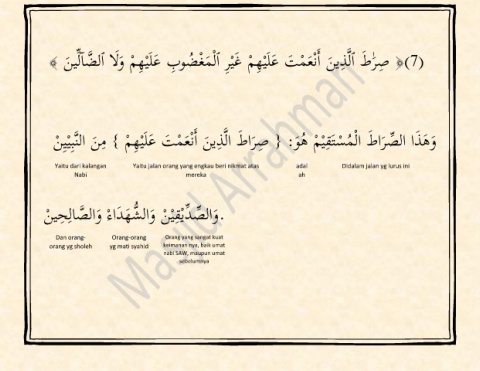 (7)﴿ صِرَٰطَ ٱلَّذِينَ أَنْعَمْتَ عَلَيْهِمْ غَيْرِ ٱلْمَغْضُوبِ عَلَيْهِمْ وَلَا ٱلضَّآلِّينَ ﴾
وَهَذَا الصِّرَاطَ الْمُسْتَقِيْمْ هُوَ: { صِرَاطَ الَّذِينَ أَنْعَمْتَ عَلَيْهِمْ } مِنَ النَّبِيِّيْنْ
Didalam jalan yg lurus ini
adal ah
Yaitu jalan orang yang engkau beri nikmat atas mereka
Yaitu dari kalangan Nabi
وَالصِّدِّيْقِيْنْ وَالشُّهَدَاءْ وَالصَّالِحِينْ.
Orang yang sangat kuat keimanan nya, baik umat nabi SAW, maupun umat sebelumnya
Orang-orang yg mati syahid
Dan orang-orang yg sholeh
Masjid Arrahman